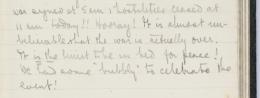 was signed at 5 am & hostilities ceased at
11 am today!! Hooray! It is almost un-
believable that the war is actually over.
It is the limit to be in bed for peace!
We had some "bubbly" to celebrate the
event!